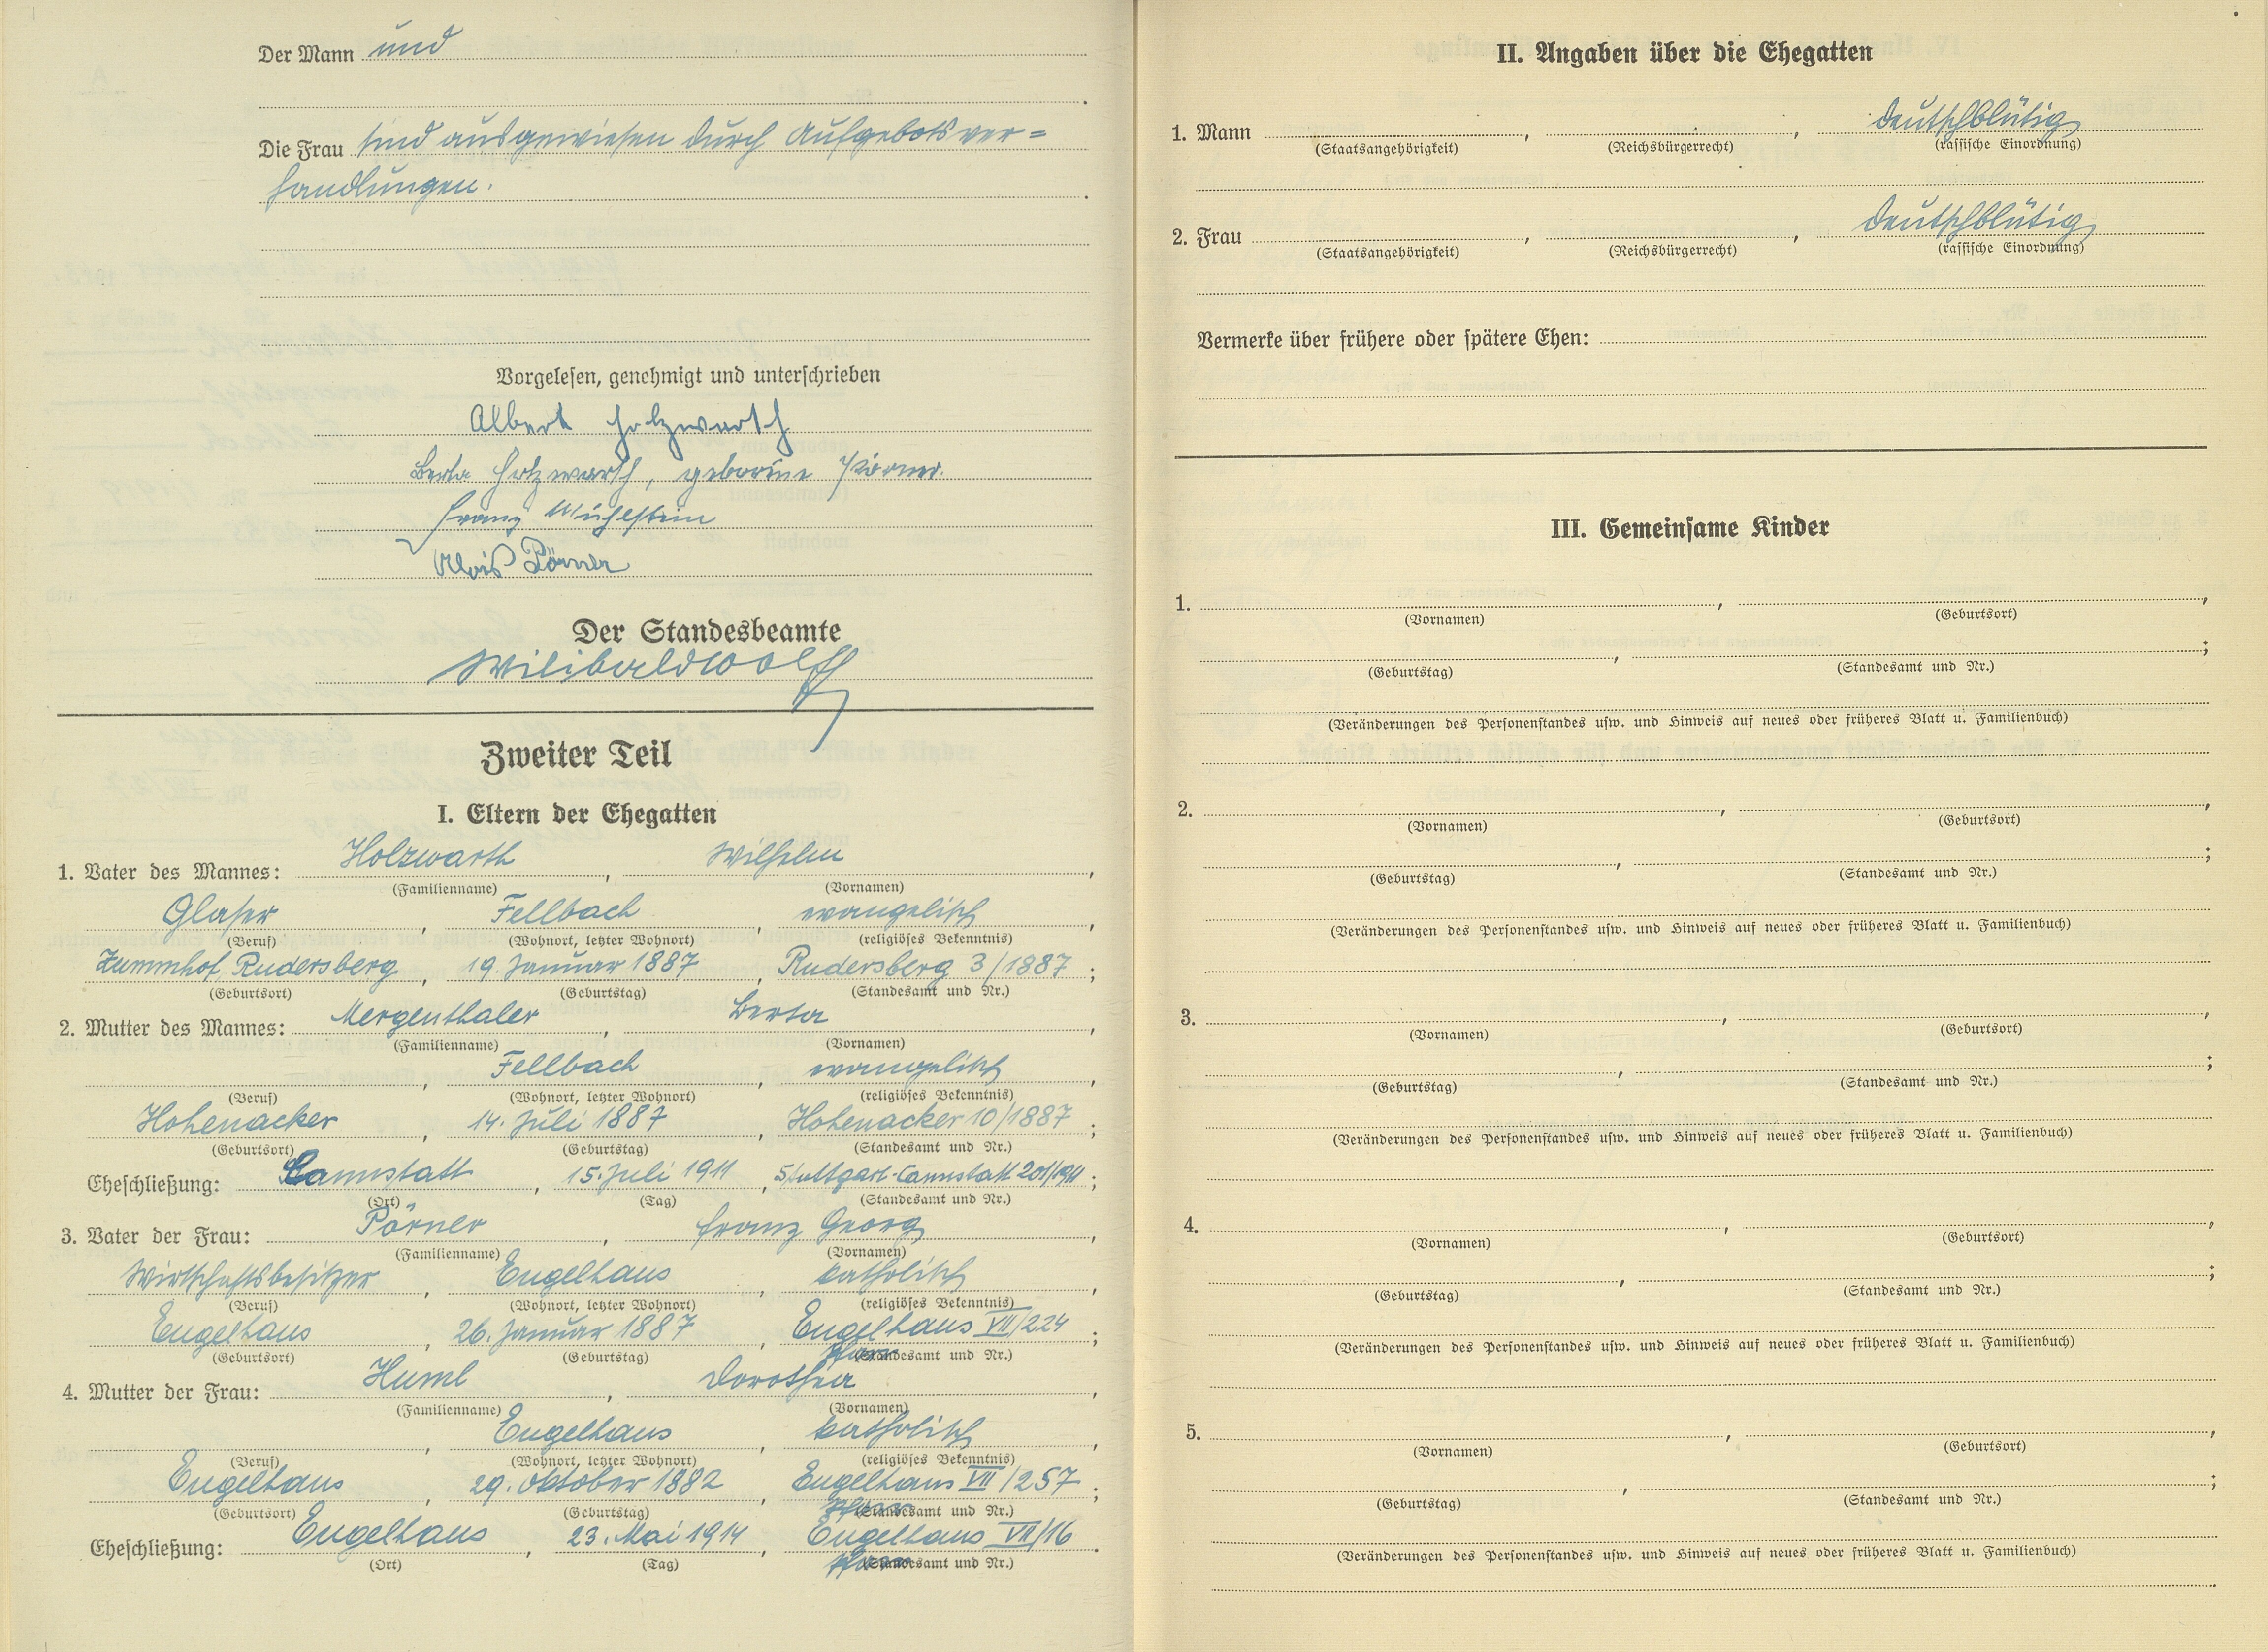 Der Mann und
Die Frau sind ausgewiesen durch Aufgebotsver=
handlungen.
Vorgelesen, genehmigt und unterschrieben
Albert Holzwarth
Berta Holzwarth, geborene Pörner.
Franz Mühlstein
Alois Pörner
Der Standesbeamte
Wilibald Wolff
Zweiter Teil
I. Eltern der Ehegatten
1. Vater des Mannes: Holzwarth, Wilhelm,
(Familienname) (Vornamen)
Glaser, Fellbach, evangelisch,
(Beruf) (Wohnort, letzter Wohnort) (religiöses Bekenntnis)
Zummhof, Rudersberg, 19. Januar 1887, Rudersberg 3/1887;
(Geburtsort) (Geburtstag) (Standesamt und Nr.)
2. Mutter des Mannes: Mergenthaler, Berta,
(Familienname) (Vornamen)
, Fellbach, evangelisch,
(Beruf) (Wohnort, letzter Wohnort) (religiöses Bekenntnis)
Hohenacker, 14. Juli 1887, Hohenacker 10/1887;
(Geburtsort) (Geburtstag) (Standesamt und Nr.)
Eheschließung: Cannstatt, 15. Juli 1911, Stuttgart-Cannstatt 201/1911;
(Ort) (Tag) (Standesamt und Nr.)
3. Vater der Frau: Pörner, Franz Georg,
(Familienname) (Vornamen)
Wirtschaftsbesitzer, Engelhaus, katholisch,
(Beruf) (Wohnort, letzter Wohnort) (religiöses Bekenntnis)
Engelhaus, 26. Januar 1887, Engelhaus VII/224;
(Geburtsort) (Geburtstag) Pfarr (Standesamt und Nr.)
4. Mutter der Frau: Huml, Dorothea,
(Familienname) (Vornamen)
, Engelhaus, katholisch,
(Beruf) (Wohnort, letzter Wohnort) (religiöses Bekenntnis)
Engelhaus, 29. Oktober 1882, Engelhaus VII/257;
(Geburtsort) (Geburtstag) Pfarr (Standesamt und Nr.)
Eheschließung: Engelhaus, 23. Mai 1914, Engelhaus VII/16.
(Ort) (Tag) Pfarr (Standesamt und Nr.)
II. Angaben über die Ehegatten
1. Mann , , deutschblütig
(Staatsangehörigkeit) (Reichsbürgerrecht) (rassische Einordnung)
2. Frau , , deutschblütig
(Staatsangehörigkeit) (Reichsbürgerrecht) (rassische Einordnung)
Vermerke über frühere oder spätere Ehen:
III. Gemeinsame Kinder
1. , ,
(Vornamen) (Geburtsort)
, ;
(Geburtstag) (Standesamt und Nr.)
(Veränderungen des Personenstandes usw. und Hinweis auf neues oder früheres Blatt u. Familienbuch)
2. , ,
(Vornamen) (Geburtsort)
, ;
(Geburtstag) (Standesamt und Nr.)
(Veränderungen des Personenstandes usw. und Hinweis auf neues oder früheres Blatt u. Familienbuch)
3. , ,
(Vornamen) (Geburtsort)
, ;
(Geburtstag) (Standesamt und Nr.)
(Veränderungen des Personenstandes usw. und Hinweis auf neues oder früheres Blatt u. Familienbuch)
4. , ,
(Vornamen) (Geburtsort)
, ;
(Geburtstag) (Standesamt und Nr.)
(Veränderungen des Personenstandes usw. und Hinweis auf neues oder früheres Blatt u. Familienbuch)
5. , ,
(Vornamen) (Geburtsort)
, ;
(Geburtstag) (Standesamt und Nr.)
(Veränderungen des Personenstandes usw. und Hinweis auf neues oder früheres Blatt u. Familienbuch)